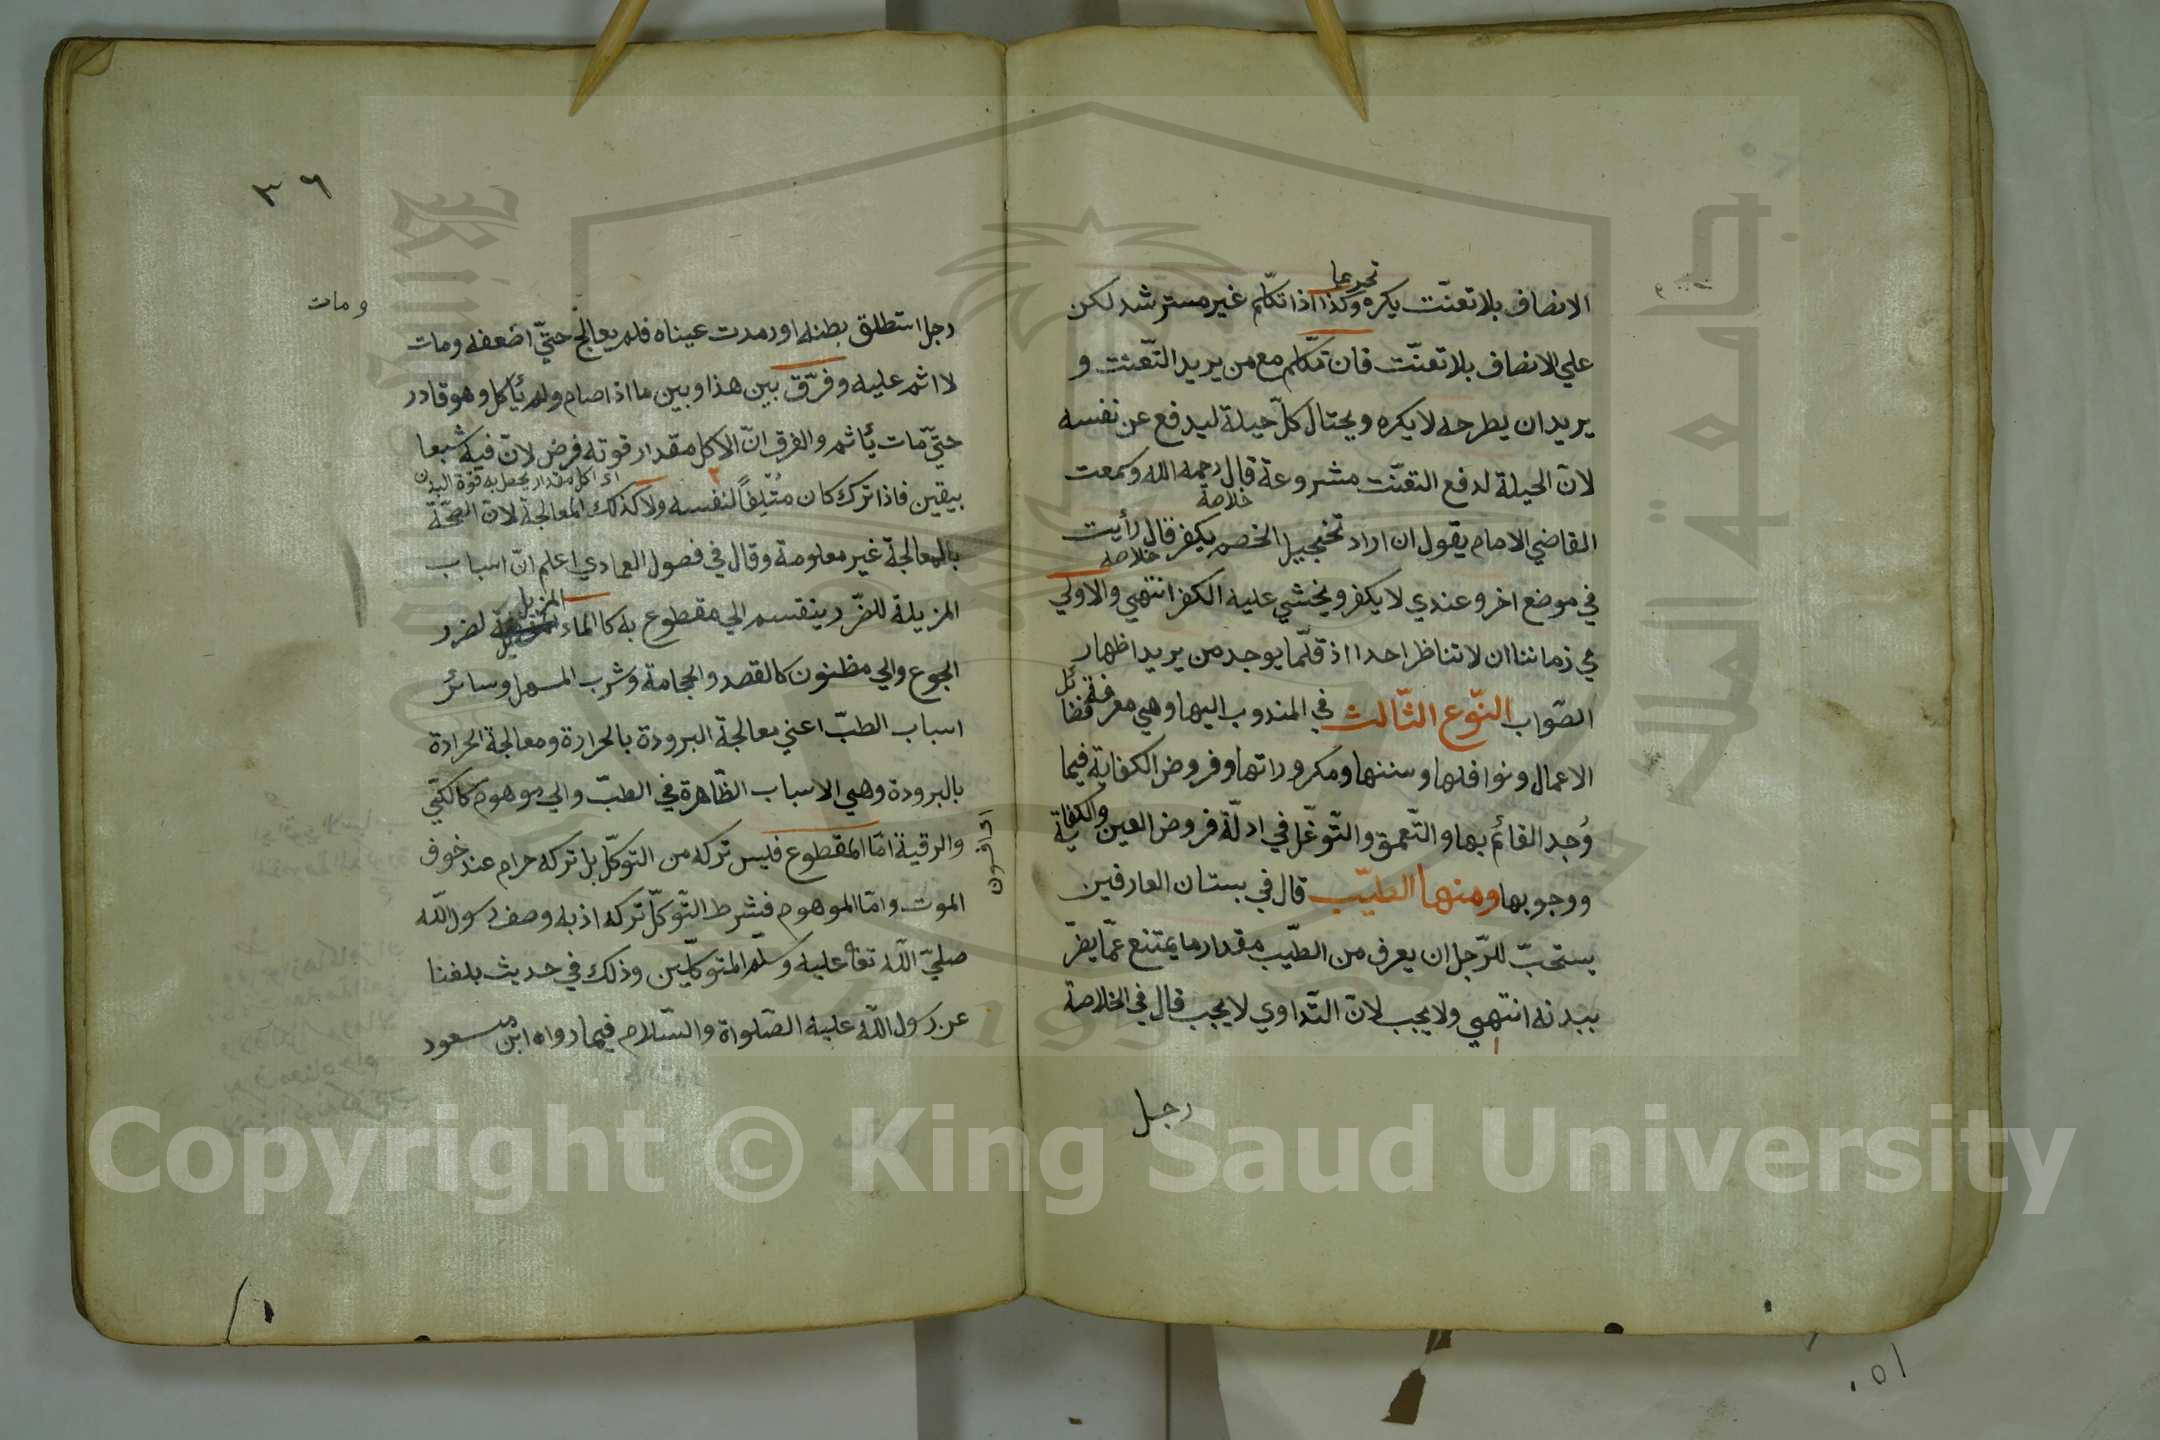 الانصاف بلا تعنّت يكره وكذا اذا تكلّم غير مسترشد لكن
علي الانصاف بلا تعنّت فان تكلم مع من يريد التّعنت و
يريد ان يطرحه لا يكره ويحتال كلّ حيلة ليدفع عن نفسه
لانّ الحيلة لدفع التعنّت مشروعة قال رحمه الله وسمعت
خلاصة
القاضي الامام يقول ان اراد تخجيل الخصم يكفر قال رأيت
خلاصه
في موضع اخر وعندي لا يكفر ويخشي عليه الكفر انتهي والاولي
في زماننا ان لا تناظر احدا اذ قلّما يوجد من يريد اظهار
الصّواب النّوع الثّالث في المندوب اليها وهي معرفة فضائل
الاعمال ونوافلها وسننها ومكروراتها وفروض الكفاية فيما
وُجد القائم بها والتّعمق والتّوغّل في ادلّة فروض العين والكفاية
ووجوبها ومنها الطيّب قال في بستان العارفين
يستحبّ للرّجل ان يعرف من الطّيب مقدار ما يمتنع عمّا يضرّ
ببدنه انتهي ولا يجب لانّ التّداوي لا يجب قال في الخلاصة
رجل
٣٦
ومات
رجل استطلق بطنه او رمدت عيناه فلم يعالج حتّي اضعفه ومات
لا اثم عليه وفرّق بين هذا وبين ما اذا صام ولم يأكل وهو قادر
حتّي مات يأثم والفرق انّ الاكل مقدار قوته فرض لانّ فيه شبعا
اي اكل مقدار يحصل به قوّة البدن
بيقين فاذا ترك كان مُتْلِفاً لنفسه ولا كذلك المعالجة لانّ الصّحّة
بالمعالجة غير معلومة وقال في فصول العمادي اعلم انّ اسباب
المزيل
المزيلة للضّرر ينقسم الي مقطوع به كالماء لضرر
الجوع والي مظنون كالفصد والحجامة وشرب المسهل وسائر
اسباب الطبّ اعني معالجة البرودة بالحرارة ومعالجة الحرارة
بالبرودة وهي الاسباب الظّاهرة في الطبّ والي موهوم كالكيّ
والرقية امّا المقطوع فليس تركه من التوكّل بل تركه حرام عند خوف
الموت وامّا الموهوم فشرط التّوكّل تركه اذ به وصف رسول اللّه
صلّيّ اللّه تعا عليه وسلّم المتوكّلين وذلك في حديث بلغنا
عن رسول اللّه عليه الصّلواة والسّلام فيما رواه ابن مسعود
Copyright © King Saud University
جامعة الملك
١٥٠